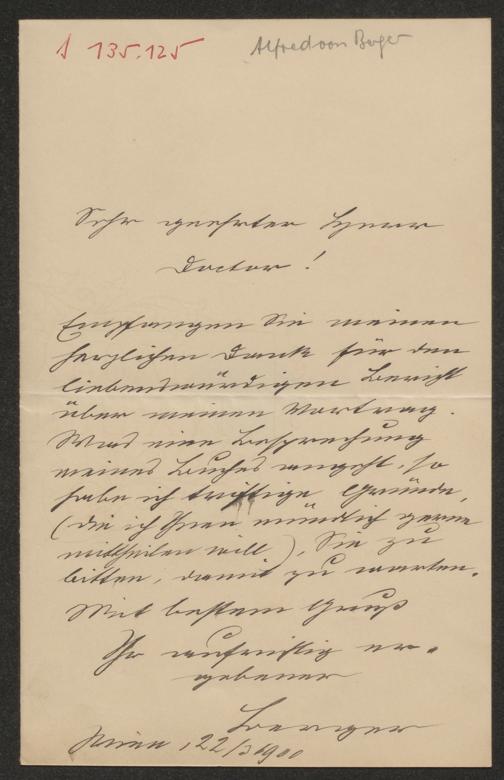 A 135.125
Alfred von Berger
Sehr geehrter Herr
Doctor!
Empfangen Sie meinen
herzlichen Dank für den
liebenswürdigen Bericht
über meinen Vortrag.
Was eine Besprechung
meines Buches angeht, so
habe ich triftige Gründe,
(die ich Ihnen mündlich gerne
mittheilen will), Sie zu
bitten, damit zu warten.
Mit bestem Gruß
Ihr aufrichtig er-
gebener
Berger
Wien, 22/3 1900